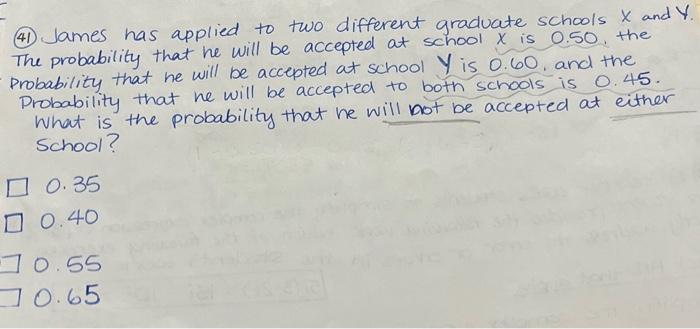 41 James has applied to two different graduate schools X and Y.
The probability that he will be accepted at school X is 0.50, the
Probability that he will be accepted at school Y is 0.60, and the
Probability that he will be accepted to both schools is 0.45.
What is the probability that he will not be accepted at either
School?
0.35
0.40
0.55
0.65